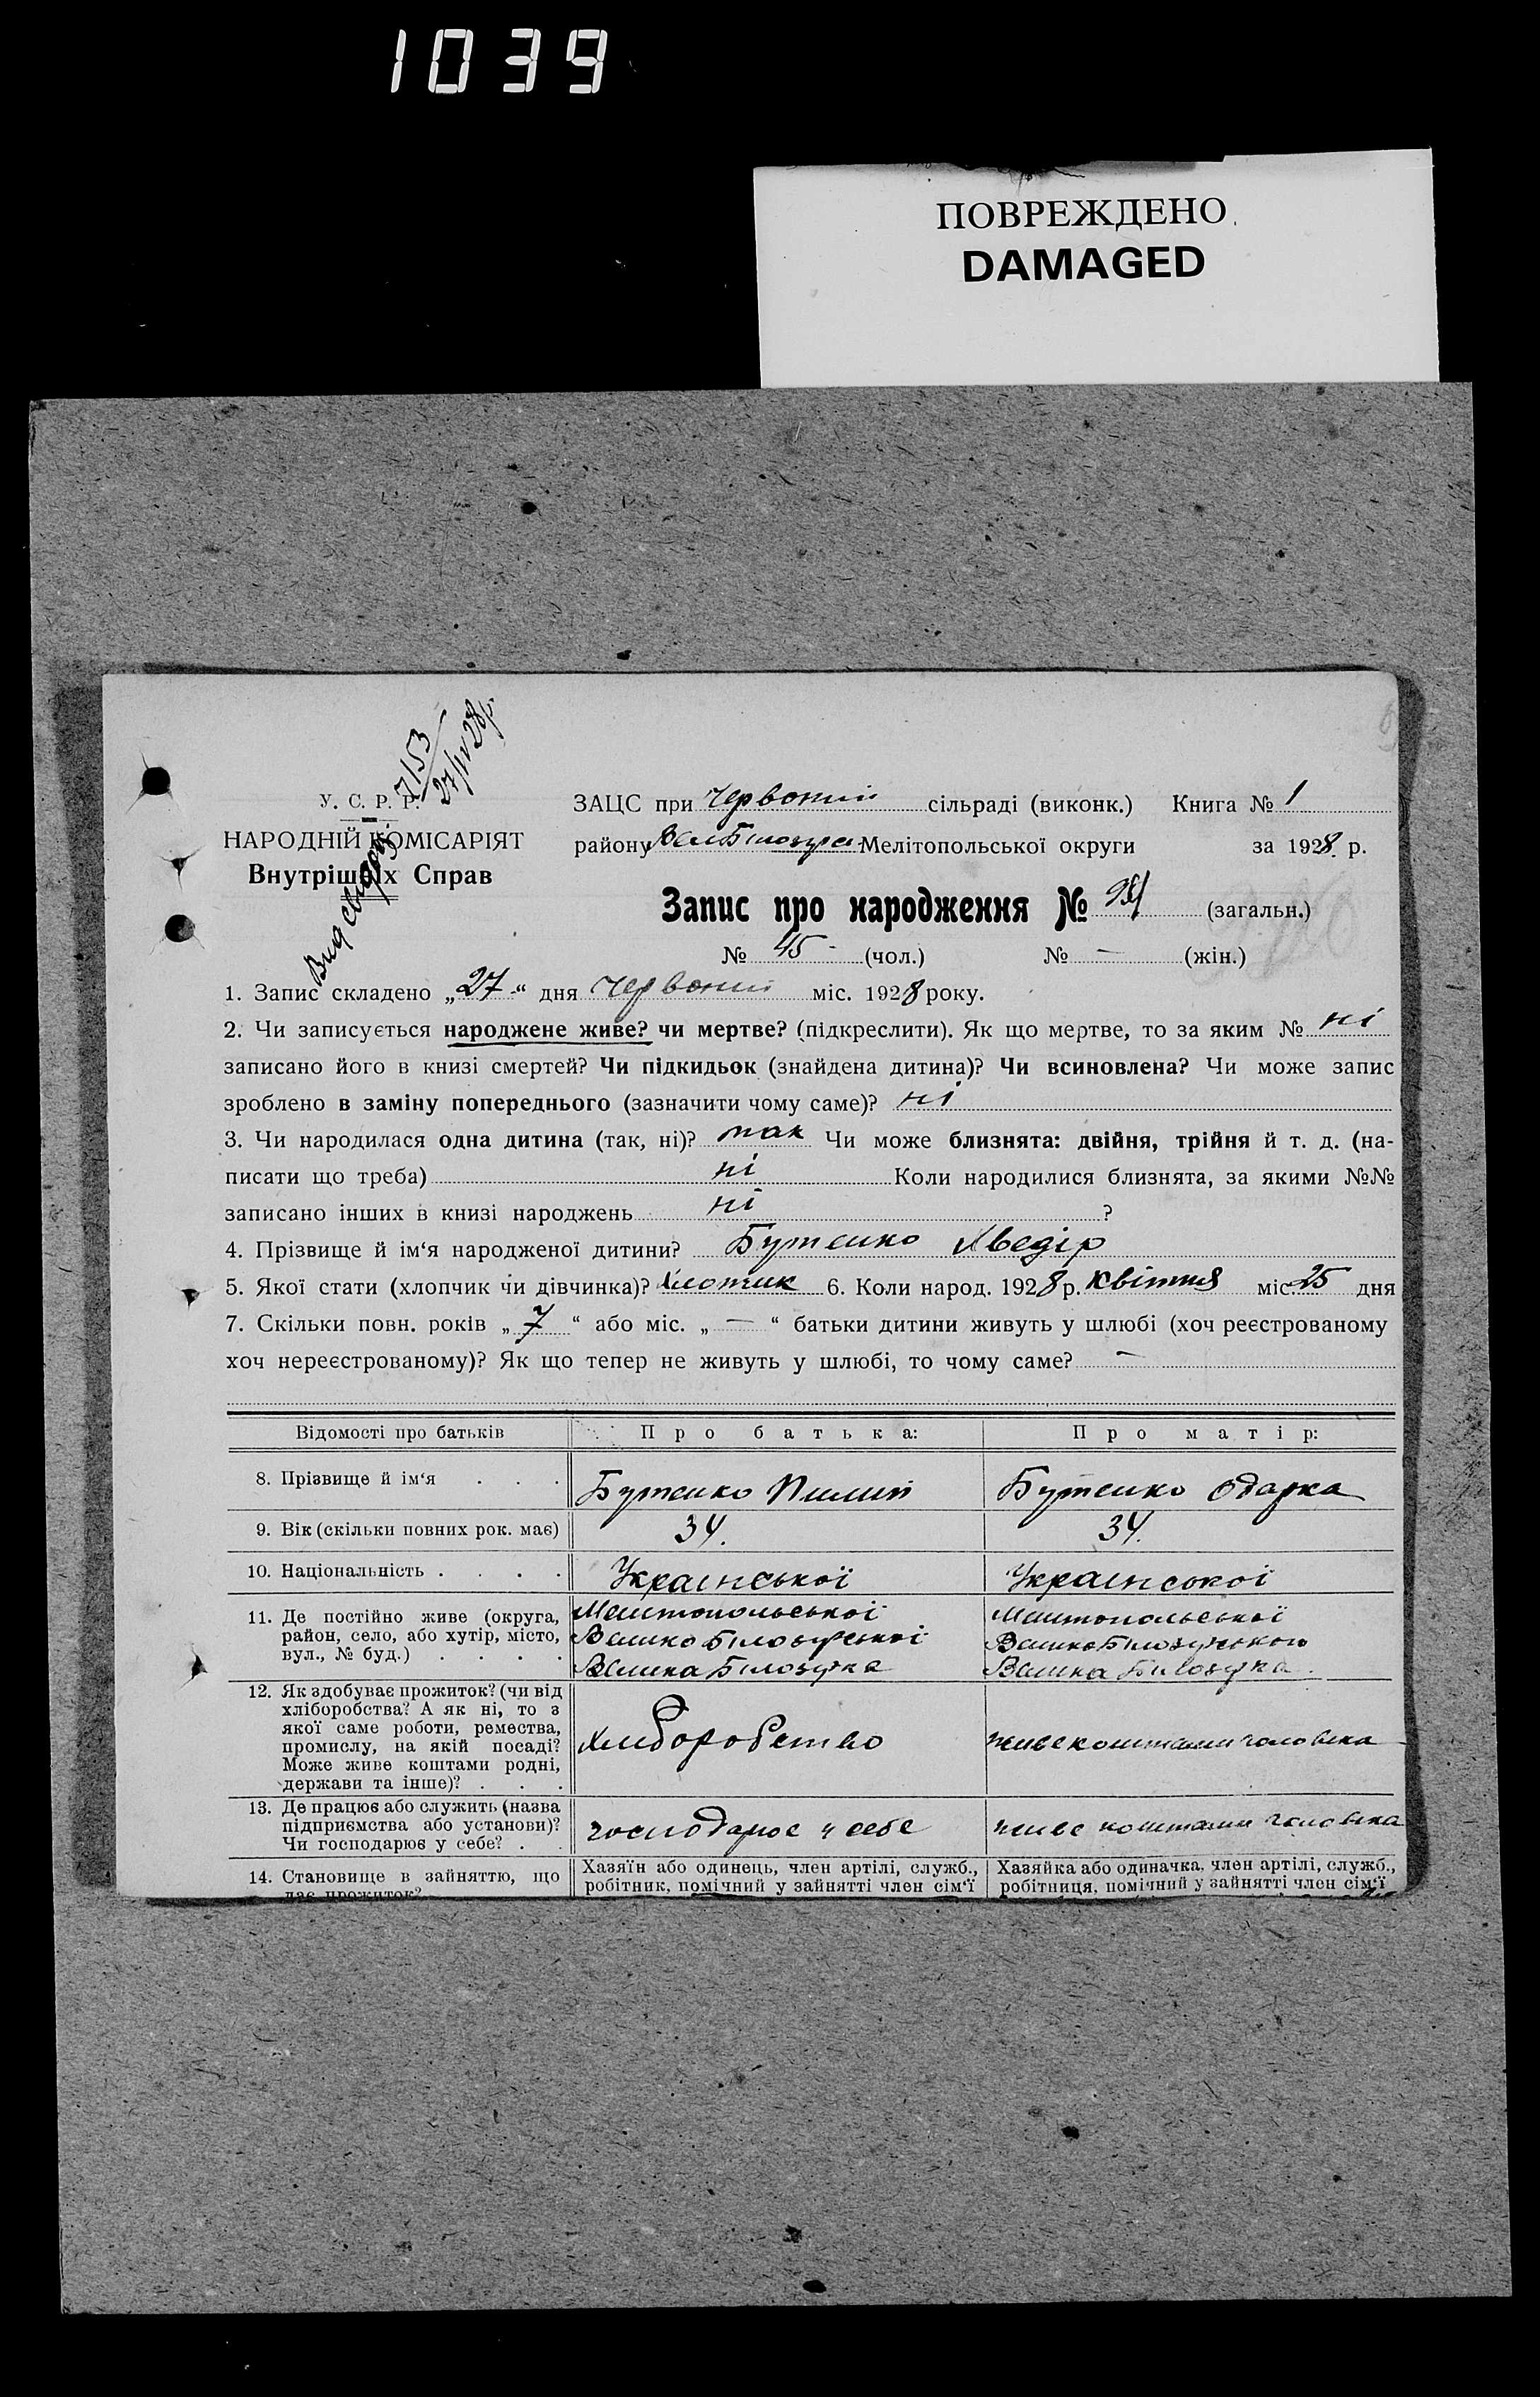 1039
ПОВРЕЖДЕНО
DAMAGED
27/IV 28р.
У. С. Р. Р.
НАРОДНІЙ КОМІСАРІЯТ
Внутрішніх Справ
ЗАЦС при Червоній сільраді (виконк.) Книга № 1
району Вел Білозірс Мелітопольської округи за 1928 р.
Запис про народження № (загальн.)
№ 45 - (чол.) № — (жін.)
1. Запис складено „27“ дня Червоній міс. 1928 року.
2. Чи записується народжене живе? чи мертве? (підкреслити). Як що мертве, то за яким № ні
записано його в книзі смертей? Чи підкидьок (знайдена дитина)? Чи всиновлена? Чи може запис
зроблено в заміну попереднього (зазначити чому саме)? ні
3. Чи народилася одна дитина (так, ні)? так Чи може близнята: двійня, трійня й т. д. (на-
писати що треба) ні Коли народилися близнята, за якими №№
записано інших в книзі народжень ні ?
4. Прізвище й ім‘я народженої дитини? Бутенко Хведір
5. Якої стати (хлопчик чи дівчинка)? Хлопчик 6. Коли народ. 1928 р. Квітня міс. 25 дня
7. Скільки повн. років „7“ або міс. „—“ батьки дитини живуть у шлюбі (хоч реєстрованому
хоч нереєстрованому)? Як що тепер не живуть у шлюбі, то чому саме? —
Відомості про батьків Про батька: Про матір:
8. Прізвище й ім‘я . . . Бутенко Пилип Бутенко Одарка
9. Вік (скільки повних рок. має) 34. 34.
10. Національність . . . . Української Української
11. Де постійно живе (округа, Мелітопольської Мелітопольської
район, село, або хутір, місто, Велико Білозірської Велико Білозірської
вул., № буд.) . . . . Велика Білозірка Велика Білозірка.
12. Як здобуває прожиток? (чи від
хліборобства? А як ні, то з
якої саме роботи, ремества,
промислу, на якій посаді? Хліборобство живе коштами чоловіка
Може живе коштами родні,
держави та інше)? . . .
13. Де працює або служить (назва
підприємства або установи)? господарює у себе живе коштами чоловіка
Чи господарює у себе? . .
14. Становище в зайняттю, що Хазяїн або одинець, член артілі, служб., Хазяйка або одиначка, член артілі, служб.,
дає прожиток? робітник, помічний у зайнятті член сім‘ї робітниця, помічний у зайнятті член сім‘ї